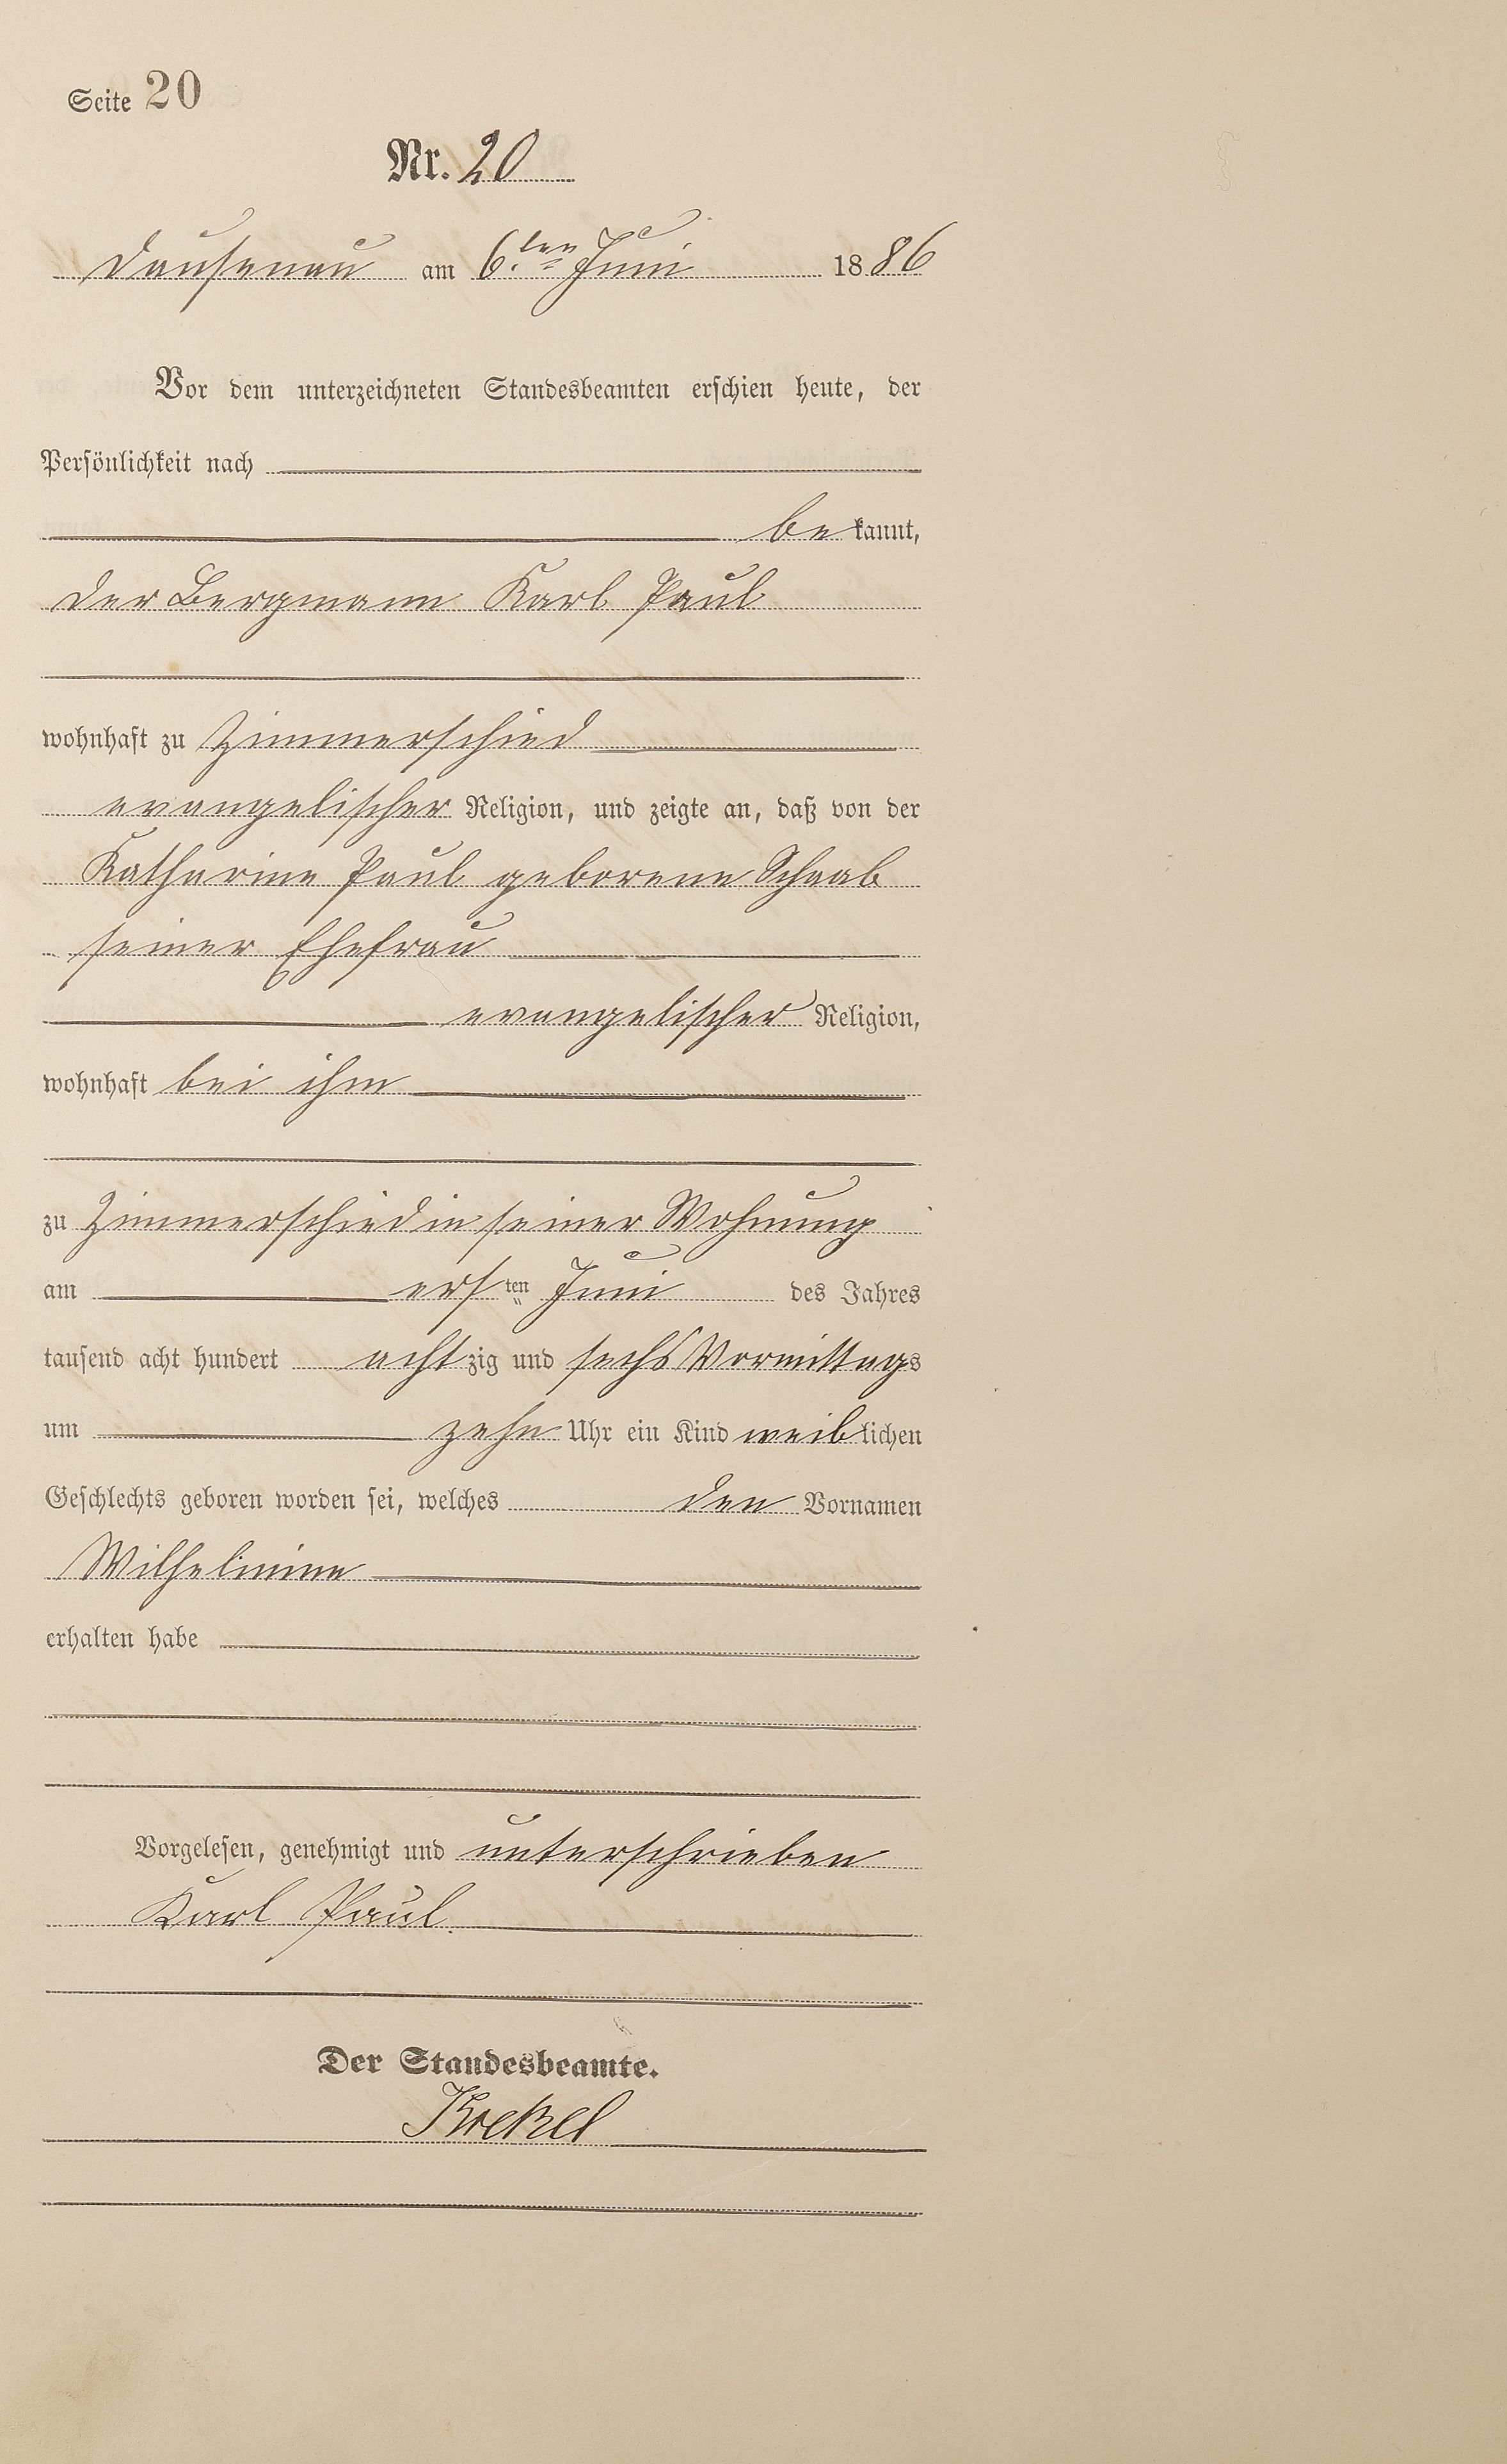 Seite 20
Nr. 20
Dausenau am 6.ten Juni 1886
Vor dem unterzeichneten Standesbeamten erschien heute, der
Persönlichkeit nach
bekannt,
der Bergmann Karl Paul
wohnhaft zu Zimmerschied
evangelischer Religion, und zeigte an, daß von der
Katharine Paul geborene Schaab
seiner Ehefrau
evangelischer Religion,
wohnhaft bei ihm
zu Zimmerschied in seiner Wohnung
am ersten Juni des Jahres
tausend acht hundert achtzig und sechs Vormittags
um zehn Uhr ein Kind weiblichen
Geschlechts geboren worden sei, welches den Vornamen
Wilhelmine
erhalten habe
Vorgelesen, genehmigt und unterschrieben
Karl Paul.
Der Standesbeamte.
Krekel